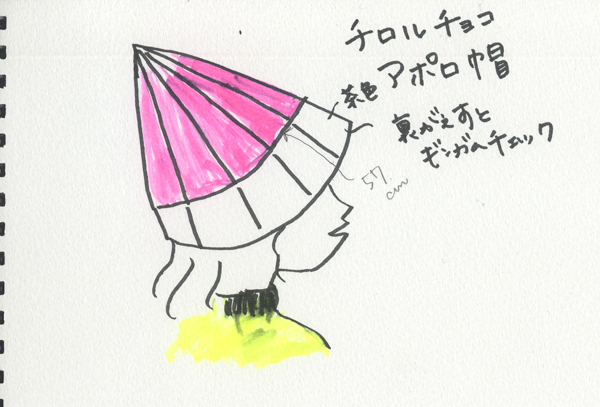 チロルチョコ
アポロ帽
茶色
裏がえすと
ギンガムチェック
57
cm